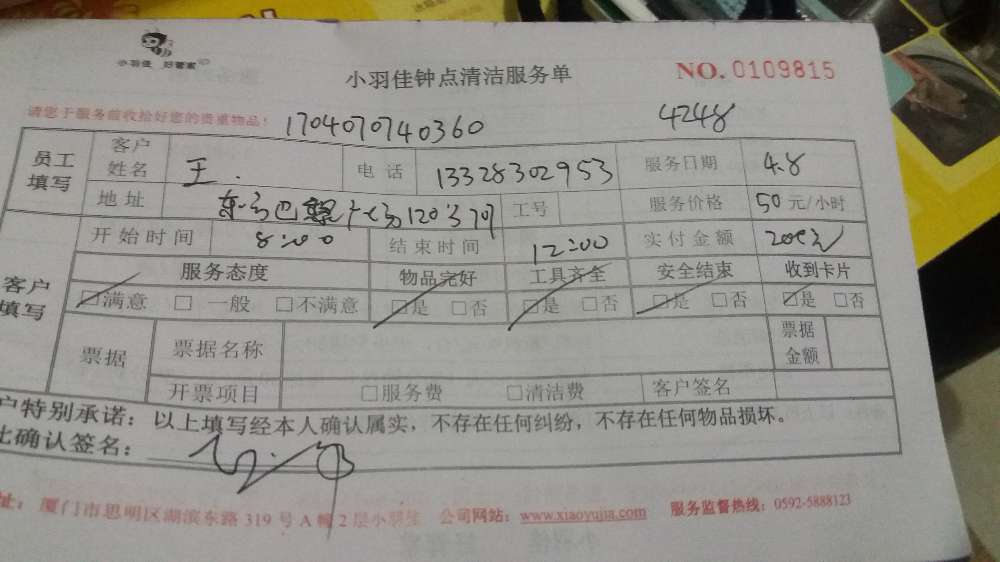 小羽佳 好管家
小羽佳钟点清洁服务单 NO. 0109815
请您于服务前收拾好您的贵重物品! 1704070740360 4248
员工填写 客户姓名 王. 电话 13328302953 服务日期 4.8
地址 工号 服务价格 50元/小时
开始时间 8:00 结束时间 12:00 实付金额 200元
客户填写 服务态度 物品完好 工具齐全 安全结束 收到卡片
☑满意 □一般 □不满意 ☑是 □否 ☑是 □否 ☑是 □否 ☑是 □否
票据 票据名称 票据金额
开票项目 □服务费 □清洁费 客户签名
户特别承诺:以上填写经本人确认属实,不存在任何纠纷,不存在任何物品损坏。
比确认签名:
址:厦门市思明区湖滨东路319号A幢2层小羽佳 公司网站:www.xiaoyujia.com 服务监督热线:0592-5888123